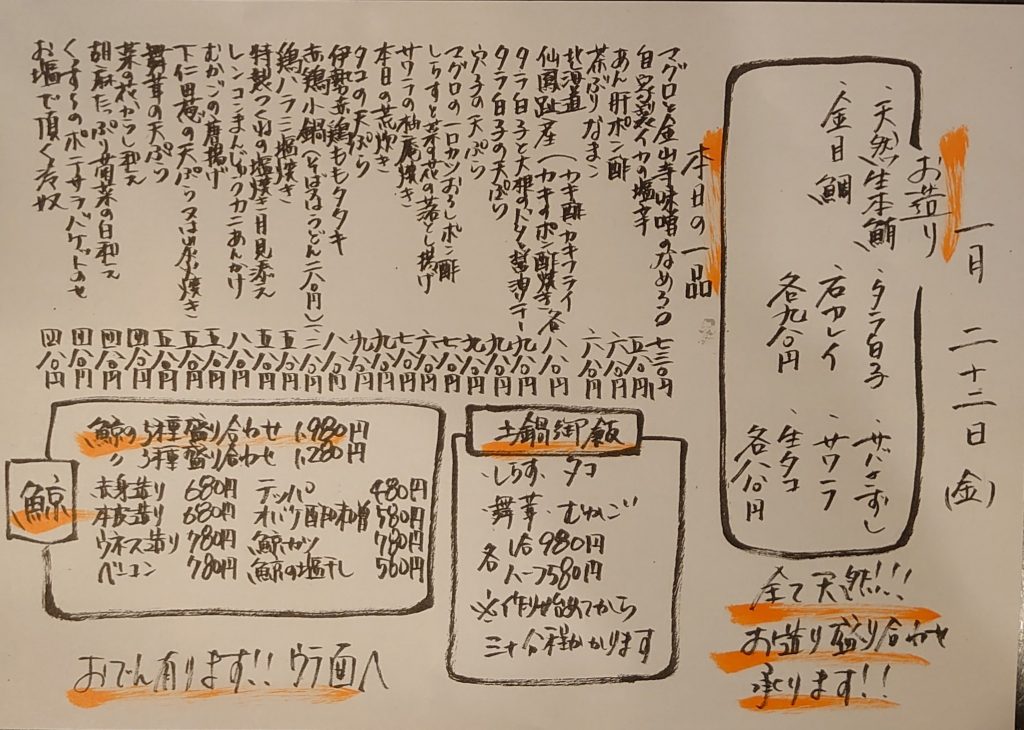 一月二十二日(金)
お造り
・天然生本鮪
・金目鯛
・タラ白子
・石カレイ
各九八〇円
・サバきずし
・サワラ
・生タコ
各八八〇円
全て天然!!!
お造り盛り合わせ
承ります!!
本日の一品
マグロと金山寺味噌のなめろう 七三〇円
自家製イカの塩辛 五八〇円
あん肝ポン酢 六八〇円
茶ぶりなまこ 六八〇円
北海道
仙鳳趾産 (カキ酢 カキフライ
カキのポン酢焼き 各八八〇円
タラ白子と大根のバター醤油ソテー 九八〇円
タラ白子の天ぷら 九八〇円
穴子の天ぷら 九八〇円
マグロの一口カツおろしポン酢 七八〇円
しらすと芽花の落とし揚げ 六八〇円
サワラの柚庵焼き 七八〇円
本日の荒炊き 九八〇円
タコの天ぷら 九八〇円
伊勢赤鶏ももタタキ 八八〇円
赤鶏小鍋(そば又はうどん二八〇円)
鶏バラミ塩焼き 五八〇円
特製つくねの塩焼き月見添え 五八〇円
レンコンまんじゅうカニあんかけ 八八〇円
むかごの唐揚げ 五八〇円
下仁田葱の天ぷら又は炭火焼き 五八〇円
舞茸の天ぷら 五八〇円
菜の花からし和え 四八〇円
胡麻たっぷり菊菜の白和え 四八〇円
くんすもののポテサラバケットのせ 四八〇円
お塩で頂く冷奴 四八〇円
土鍋御飯
・しらす・タコ
・舞茸・むかご
各 1合980円
ハーフ580円
※作り始めてから
三十分程かかります
鯨
鯨の5種盛り合わせ 1,980円
〃 3種盛り合わせ 1,280円
赤身造り 680円
本皮造り 680円
ウネス造り 780円
ベーコン 780円
テッパ 480円
オバケ酢味噌 580円
鯨カツ 780円
鯨の塩干し 580円
おでん有ります!!ウラ面へ